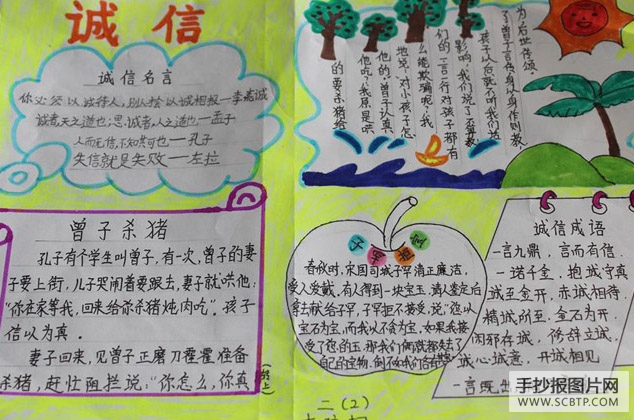 诚信
诚信名言
你必须以诚待人，别人才会以诚相报—李嘉诚
诚者，天之道也；思诚者，人之道也—孟子
人而无信，不知其可也—孔子
失信就是失败—左拉
曾子杀猪
孔子有个学生叫曾子，有一次，曾子的妻
子要上街，儿子哭闹着要跟去，妻子就哄他：
“你在家等我，回来给你杀猪炖肉吃”。孩子
信以为真。
妻子回来，见曾子正磨刀霍霍准备
杀猪，赶忙阻拦说：“你怎么，你真
(接上)
的要杀猪给
他吃？我原是哄
他的。”曾子认真
地说：“对小孩子怎
么能欺骗呢？我
们的一言一行对孩子都有
影响，我们说了不算数，
孩子以后就不听我们
曾子言传身以身作则教
为后世传颂。
春秋时，宋国司城子罕清正廉洁，
受人爱戴。有人得到一块宝玉，请人鉴定后
拿去献给子罕，子罕拒不接受，说：“您以
宝石为宝，而我以不贪为宝，如果我接
受了您的玉，那我们俩就都失去了
自己的宝物，倒不如我们各有其
诚信成语
一言九鼎，言而有信，
一诺千金，抱诚守真
诚至金开，赤诚相待，
精诚所至，金石为开，
闲邪存诚，修辞立诚，
诚心诚意，开诚相见，
一言既出
二（2）
手抄报图片网
WWW.SCBTP.COM